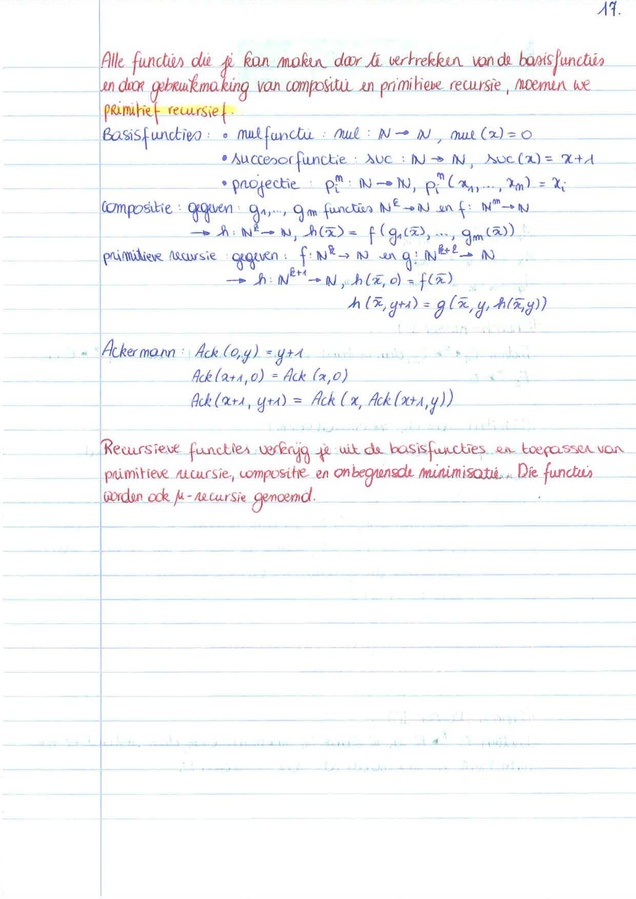 17.
Alle functies die je kan maken door te vertrekken van de basisfuncties
en door gebruikmaking van compositie en primitieve recursie, noemen we
primitief recursief.
Basisfuncties : • nulfunctie : nul : ℕ → ℕ, nul(x) = 0
• succesorfunctie : suc : ℕ → ℕ, suc(x) = x+1
• projectie : pᵢᵐ : ℕ → ℕ, pᵢᵐ(x₁, ..., xₘ) = xᵢ
compositie : gegeven : g₁, ..., gₘ functies ℕᵏ → ℕ en f : ℕᵐ → ℕ
→ h : ℕᵏ → ℕ, h(x̄) = f(g₁(x̄), ..., gₘ(x̄))
primitieve recursie : gegeven : f : ℕᵏ → ℕ en g : ℕᵏ⁺² → ℕ
→ h : ℕᵏ⁺¹ → ℕ, h(x̄, 0) = f(x̄)
h(x̄, y+1) = g(x̄, y, h(x̄,y))
Ackermann : Ack(0,y) = y+1
Ack(x+1, 0) = Ack(x,0)
Ack(x+1, y+1) = Ack(x, Ack(x+1,y))
Recursieve functies verkrijg je uit de basisfuncties en toepassen van
primitieve recursie, compositie en onbegrensde minimisatie. Die functies
worden ook μ-recursie genoemd.